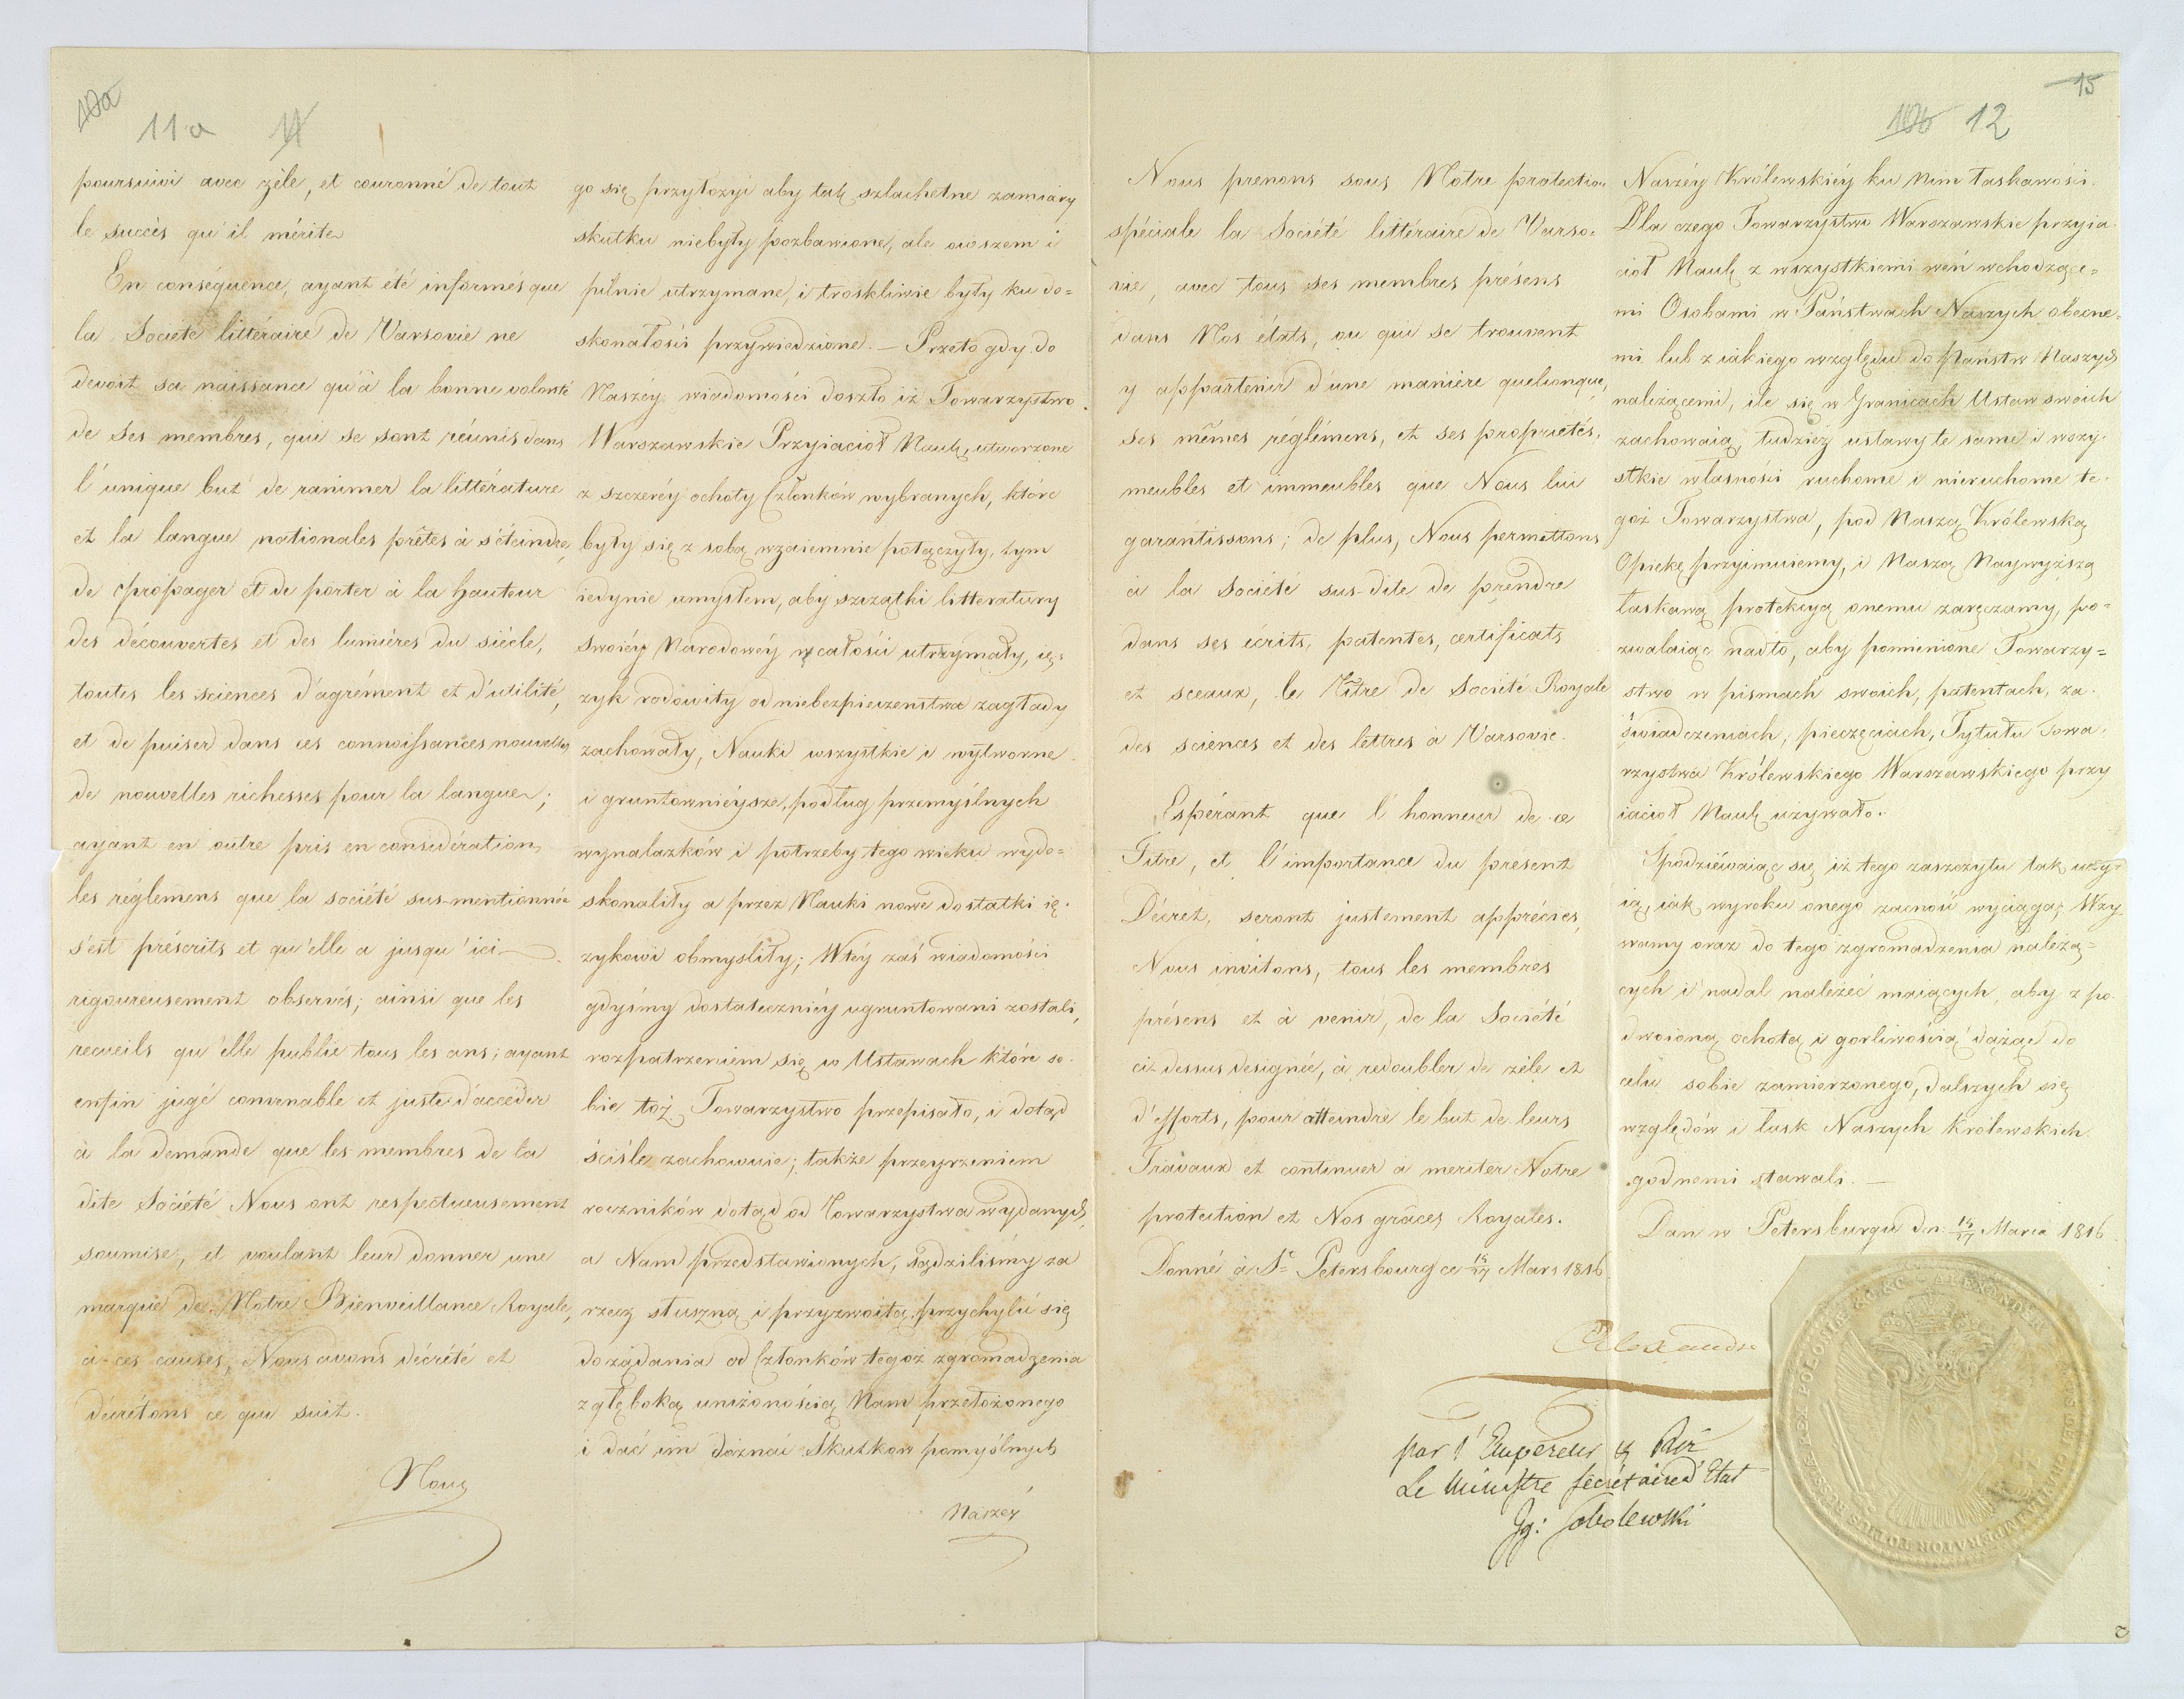 10a
11a 11
poursuivi avec zèle, et couronné de tout
le succès qu'il mérite
En conséquence, ayant été informés que
la Société littéraire de Varsovie ne
devoit sa naissance qu'à la bonne volonté
de ses membres, qui se sont réunis dans
l'unique but de ranimer la littérature
et la langue nationales prêtes à s'éteindre,
de propager et de porter à la hauteur
des découvertes et des lumières du siècle,
toutes les sciences d'agrément et d'utilité,
et de puiser dans ces connoissances nouvelles
de nouvelles richesses pour la langue;
ayant en outre pris en considération,
les réglemens que la société sus-mentionnée
s'est préscrits et qu'elle a jusqu'ici
rigoureusement observés; ainsi que les
recueils qu'elle publie tous les ans; ayant
enfin jugé convenable et juste d'accéder
à la demande que les membres de la
dite Société Nous ont respectueusement
soumise, et voulant leur donner une
marque de Notre Bienveillance Royale,
à ces causes, Nous avons décrété et
décrétons ce qui suit.
Nous
go się przyłożyi aby tak szlachetne zamiary
skutku niebyły pozbawione, ale owszem i
pilnie utrzymane, i troskliwie były ku do=
skonałości przywiedzione. — Przeto gdy do
Naszéy wiadomości doszło iż Towarzystwo
Warszawskie Przyiacioł Nauk, utworzone
z szczeréy ochoty Członków wybranych, które
były się z sobą wzaiemnie połączyły, tym
iedynie umysłem, aby szczątki litteratury
swoiéy Narodowéy w całości utrzymały, ię=
zyk rodowity od niebezpieczenstwa zagłady
zachowały, Nauki wszystkie i wytworne
i gruntownieysze, podług przemyślnych
wynalazków i potrzeby tego wieku wydo=
skonaliły a przez Nauki nowe dostatki ię=
zykowi obmyśliły; W téy zaś wiadomości
gdyśmy dostateczniéy ugruntowani zostali,
rozpatrzeniem się w Ustawach które so=
bie toż Towarzystwo przepisało, i dotąd
ściśle zachowuie; także przeyrzeniem
roczników dotąd od Towarzystwa wydanych,
a Nam przedstawionych, sądziliśmy za
rzecz słuszną i przyzwoitą przychylić się
do żądania od Członków tegoż zgromadzenia
z głęboką uniżonością Nam przełożonego
i dać im doznać Skutkow pomyślnych
Naszéy
15
10b 12
Nous prenons sous Notre protection
spéciale la Société littéraire de Varso=
vie, avec tous ses membres présens
dans Nos états, ou qui se trouvent
y appartenir d'une manière quelconque,
ses mêmes réglémens, et ses propriétés,
meubles et immeubles que Nous lui
garantissons; de plus, Nous permettons
à la Société sus-dite de prendre
dans ses écrits, patentes, certificats
et sceaux, le Titre de Société Royale
des sciences et des lettres à Varsovie.
Espérant que l'honneur de ce
Titre, et l'importance du present
Décret, seront justement appréciés,
Nous invitons, tous les membres
présens et à venir, de la Société
ci-dessus designée, à redoubler de zèle et
d'efforts, pour atteindre le but de leurs
Travaux et continuer à meriter Notre
protection et Nos grâces Royales.
Donné à St Petersbourg ce 15/27 Mars 1816
Alexandre
par l'Empereur & Roi
Le Ministre Secrétaire d'Etat
Ig: Sobolewski
Naszéy Królewskiéy ku Nim łaskawości.
Dla czego Towarzystwo Warszawskie przyia=
cioł Nauk z wszystkiemi weń wchodzące=
mi Osobami w Państwach Naszych obecne=
mi lub z iakiego względu do Państw Naszych
należącemi, ile się w Granicach Ustaw swoich
zachowaią, tudzież ustawy te same i wszy=
stkie własności ruchome i nieruchome te=
goż Towarzystwa, pod Naszą Królewską
Opiekę przyimuiemy, i Naszą Naywyższą
łaskawą protekcyą onemu zaręczamy, po=
zwalaiąc nadto, aby pomienione Towarzy=
stwo w pismach swoich, patentach, za=
świadczeniach, pieczęciach, Tytułu Towa=
rzystwa Królewskiego Warszawskiego przy
iacioł Nauk używało.
Spodziéwaiąc się iż tego zaszczytu tak użyi=
ią, iak wyroku onego zacność wyciąga; Wzy
wamy oraz do tego zgromadzenia należą=
cych i nadal należeć maiących, aby z po=
dwoioną ochotą i gorliwością dążąc do
celu sobie zamierzonego, dalszych się
względów i łask Naszych Królewskich
godnemi stawali. —
Dan w Petersburgu dn. 15/27 Marca 1816
ALEXANDER
IMPERATOR TOTIUS RUSSIÆ REX POLONIÆ &c &c &c